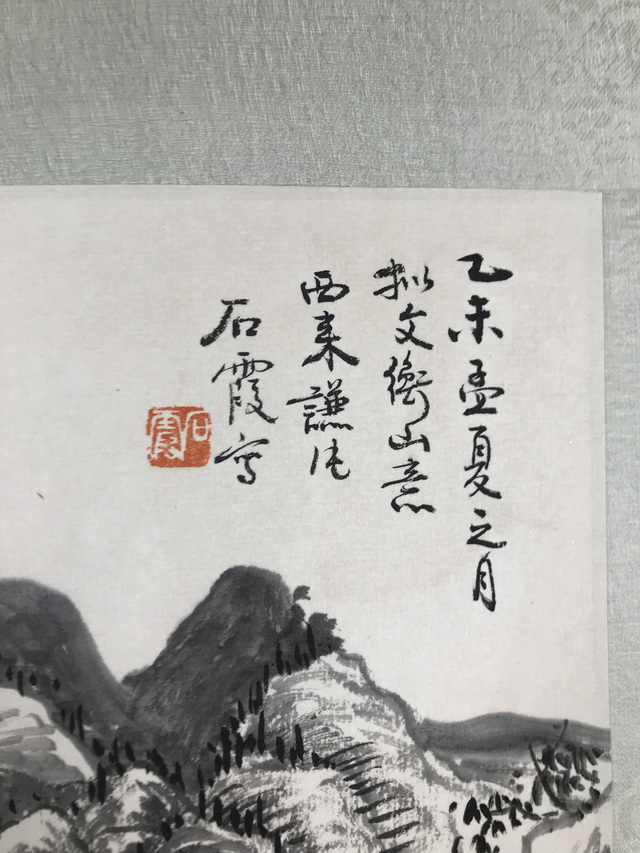 乙未孟夏之月
拟文衡山意
西来谦法
石霞写
石霞